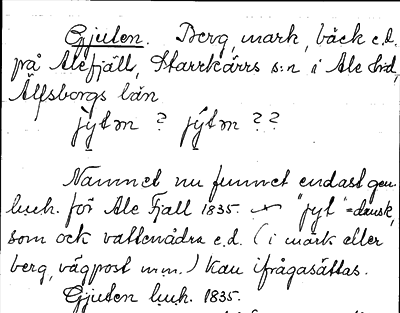 Gjuten. Berg, mark, bäck e.d.
på Alefjäll, Starrkärrs s:n i Ale hd,
Älfsborgs län
jýtm ? jýtm ??
Namnet nu funnet endast gen.
luch. för Ale Fjäll 1835. "jyt" = dansk,
som ock vattenådra e.d. (i mark eller
berg, vägpost m.m.) kan ifrågasättas.
Gjuten luch. 1835.